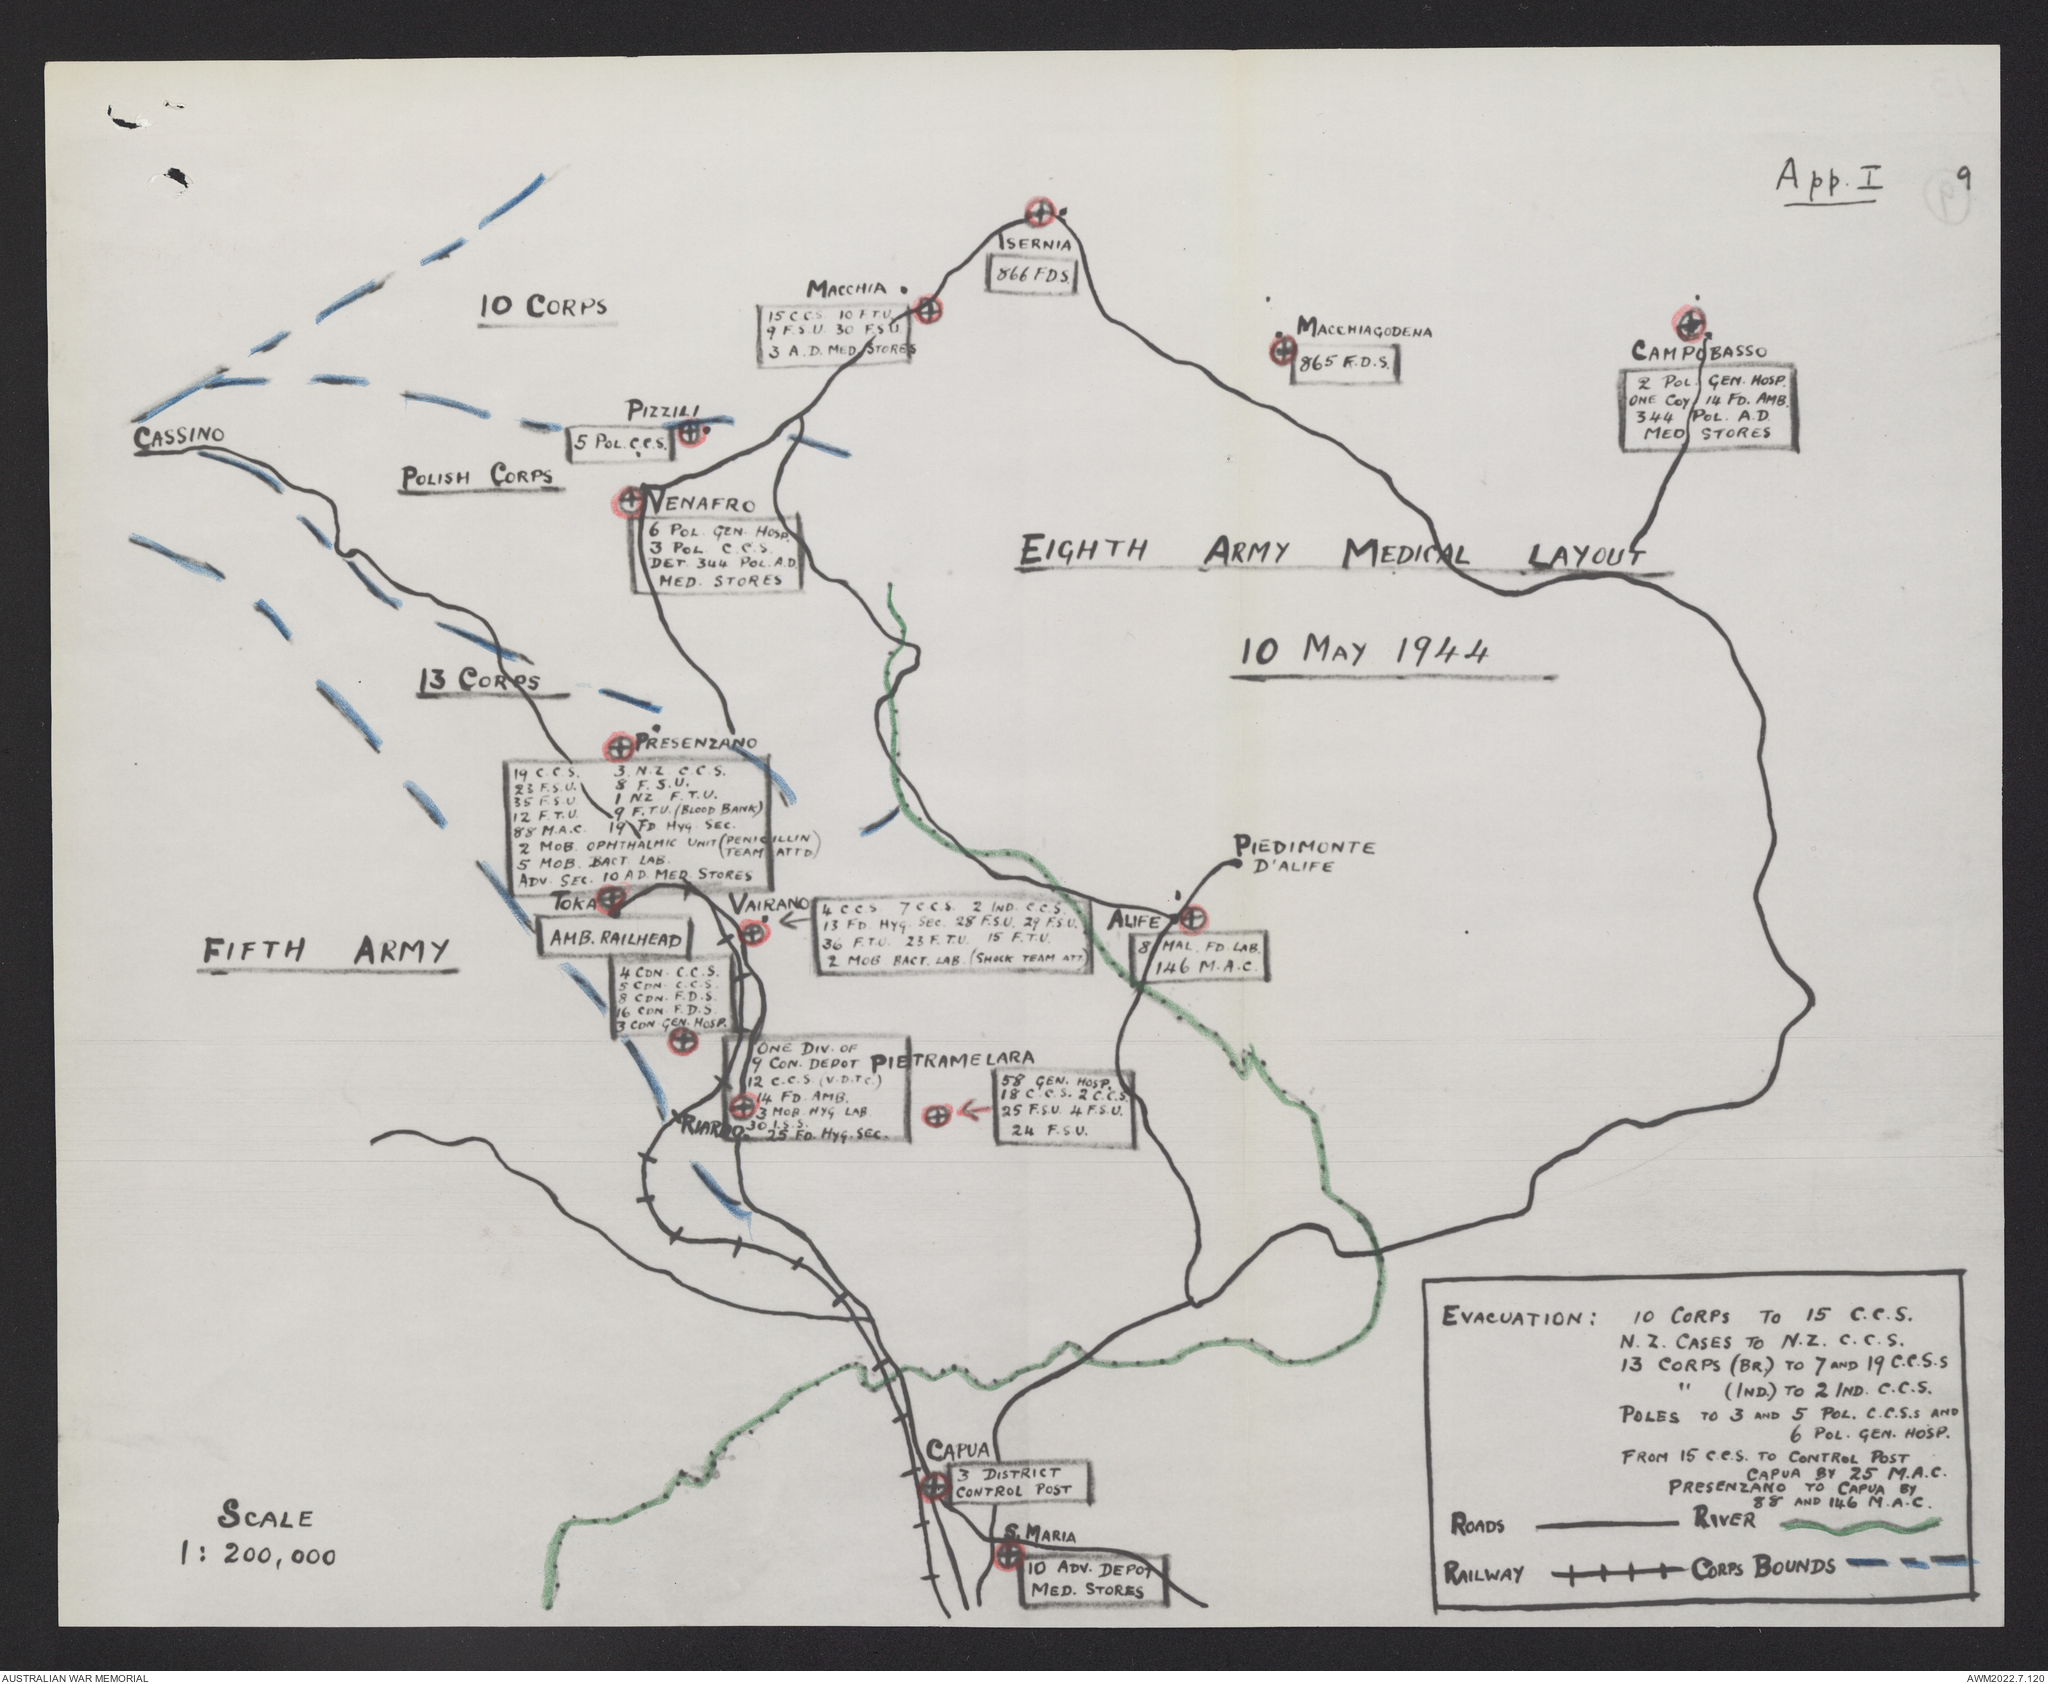 App. I 9
ISERNIA
866 F.D.S.
MACCHIA
15 C.C.S. 10 F.T.U.
9 F.S.U. 30 F.S.U.
3 A.D. MED. STORES
10 CORPS
MACCHIAGODENA
865 F.D.S.
CAMPOBASSO
2 POL. GEN. HOSP.
ONE COY 14 FD. AMB.
344 POL. A.D.
MED. STORES
PIZZILI
5 POL. C.C.S.
CASSINO
POLISH CORPS
VENAFRO
6 POL. GEN. HOSP.
3 POL. C.C.S.
DET. 344 POL. A.D.
MED. STORES
EIGHTH ARMY MEDICAL LAYOUT
10 MAY 1944
13 CORPS
PRESENZANO
19 C.C.S. 3 N.Z. C.C.S.
23 F.S.U. 8 F.S.U.
35 F.S.U. 1 NZ F.T.U.
12 F.T.U. 9 F.T.U. (BLOOD BANK)
88 M.A.C. 19 FD. HYG. SEC.
2 MOB. OPHTHALMIC UNIT (PENICILLIN
TEAM ATTD)
5 MOB. BACT. LAB.
ADV. SEC. 10 AD. MED. STORES
PIEDIMONTE
D'ALIFE
TOKA
AMB. RAILHEAD
VAIRANO
4 C.C.S. 7 C.C.S. 2 IND. C.C.S.
13 FD. HYG. SEC. 28 F.S.U. 29 F.S.U.
36 F.T.U. 23 F.T.U. 15 F.T.U.
2 MOB. BACT. LAB. (SHOCK TEAM ATT)
ALIFE
8 MAL. FD. LAB.
146 M.A.C.
FIFTH ARMY
4 CDN. C.C.S.
5 CDN. C.C.S.
8 CDN. F.D.S.
16 CDN. F.D.S.
3 CDN. GEN. HOSP.
ONE DIV. OF
9 CON. DEPOT
12 C.C.S. (V.D.T.C.)
14 FD. AMB.
3 MOB. HYG. LAB.
30 I.S.S.
25 FD. HYG. SEC.
RIARDO
PIETRAMELARA
58 GEN. HOSP.
18 C.C.S. 2 C.C.S.
25 F.S.U. 4 F.S.U.
24 F.S.U.
CAPUA
3 DISTRICT
CONTROL POST
S. MARIA
10 ADV. DEPOT
MED. STORES
SCALE
1 : 200,000
EVACUATION: 10 CORPS TO 15 C.C.S.
N.Z. CASES TO N.Z. C.C.S.
13 CORPS (BR.) TO 7 AND 19 C.C.S.s
" (IND.) TO 2 IND. C.C.S.
POLES TO 3 AND 5 POL. C.C.S.s AND
6 POL. GEN. HOSP.
FROM 15 C.C.S. TO CONTROL POST
CAPUA BY 25 M.A.C.
PRESENZANO TO CAPUA BY
88 AND 146 M.A.C.
ROADS RIVER
RAILWAY CORPS BOUNDS
AUSTRALIAN WAR MEMORIAL AWM2022.7.120